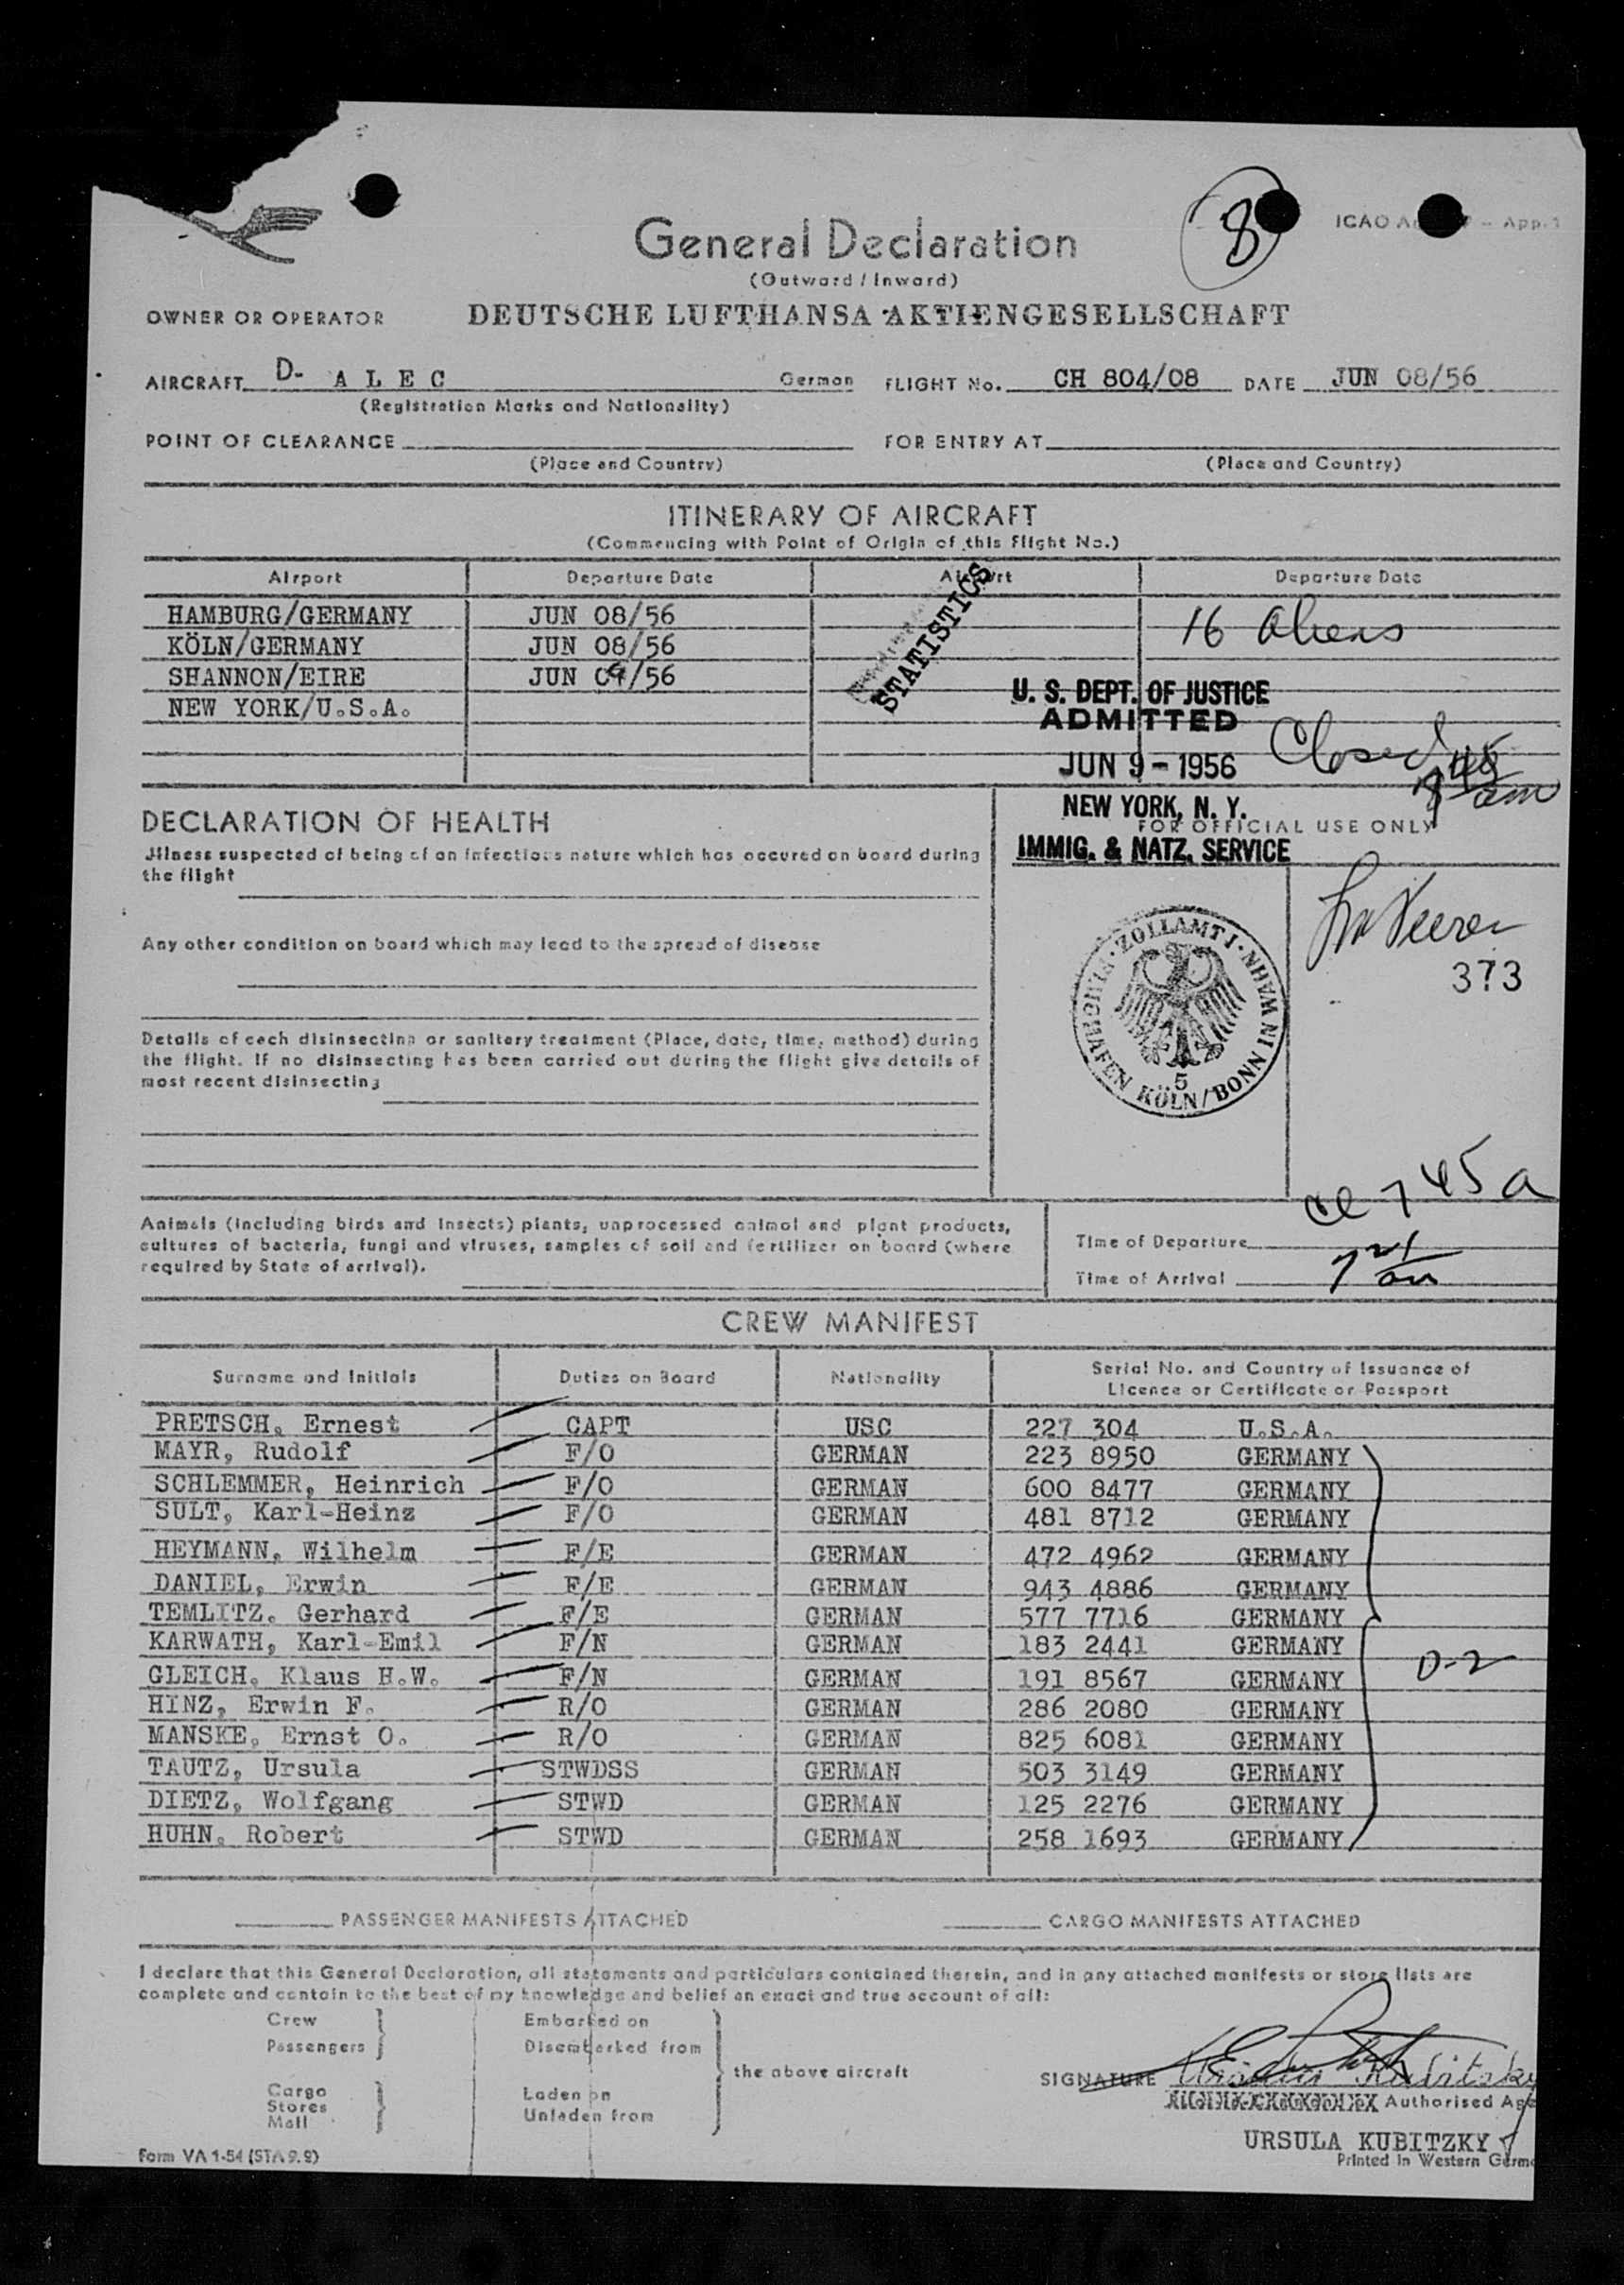 General Declaration
8
ICAO
App. 1
(Outward / Inward)
OWNER OR OPERATOR DEUTSCHE LUFTHANSA AKTIENGESELLSCHAFT
AIRCRAFT D- A L E C German FLIGHT No. CH 804/08 DATE JUN 08/56
(Registration Marks and Nationality)
POINT OF CLEARANCE FOR ENTRY AT
(Place and Country) (Place and Country)
ITINERARY OF AIRCRAFT
(Commencing with Point of Origin of this Flight No.)
Airport Departure Date Airport Departure Date
HAMBURG/GERMANY JUN 08/56
KÖLN/GERMANY JUN 08/56
SHANNON/EIRE JUN 09/56
NEW YORK/U.S.A.
STATISTICS
16 Aliens
U. S. DEPT. OF JUSTICE
ADMITTED
JUN 9 - 1956
NEW YORK, N. Y.
IMMIG. & NATZ. SERVICE
Closed 7 45 am
FOR OFFICIAL USE ONLY
DECLARATION OF HEALTH
Illness suspected of being of an infectious nature which has occured on board during
the flight
Any other condition on board which may lead to the spread of disease
Details of each disinsecting or sanitary treatment (Place, date, time, method) during
the flight. If no disinsecting has been carried out during the flight give details of
most recent disinsecting
ZOLLAMT I · FLUGHAFEN KÖLN/BONN IN WAHN ·
5
373
Cl 7 45 a
Animals (including birds and insects) plants, unprocessed animal and plant products,
cultures of bacteria, fungi and viruses, samples of soil and fertilizer on board (where
required by State of arrival).
Time of Departure
Time of Arrival 7 21 am
CREW MANIFEST
Surname and Initials Duties on Board Nationality Serial No. and Country of Issuance of
Licence or Certificate or Passport
PRETSCH, Ernest CAPT USC 227 304 U.S.A.
MAYR, Rudolf F/O GERMAN 223 8950 GERMANY
SCHLEMMER, Heinrich F/O GERMAN 600 8477 GERMANY
SULT, Karl-Heinz F/O GERMAN 481 8712 GERMANY
HEYMANN, Wilhelm F/E GERMAN 472 4962 GERMANY
DANIEL, Erwin F/E GERMAN 943 4886 GERMANY
TEMLITZ, Gerhard F/E GERMAN 577 7716 GERMANY
KARWATH, Karl-Emil F/N GERMAN 183 2441 GERMANY
GLEICH, Klaus H.W. F/N GERMAN 191 8567 GERMANY
D-2
HINZ, Erwin F. R/O GERMAN 286 2080 GERMANY
MANSKE, Ernst O. R/O GERMAN 825 6081 GERMANY
TAUTZ, Ursula STWDSS GERMAN 503 3149 GERMANY
DIETZ, Wolfgang STWD GERMAN 125 2276 GERMANY
HUHN, Robert STWD GERMAN 258 1693 GERMANY
PASSENGER MANIFESTS ATTACHED CARGO MANIFESTS ATTACHED
I declare that this General Declaration, all statements and particulars contained therein, and in any attached manifests or store lists are
complete and contain to the best of my knowledge and belief an exact and true account of all:
Crew Embarked on
Passengers Disembarked from
the above aircraft
Cargo Laden on
Stores
Mail Unladen from
SIGNATURE Ursula Kubitzky
Authorised Age
URSULA KUBITZKY
Form VA 1-54 (STA 9.9) Printed in Western Germ